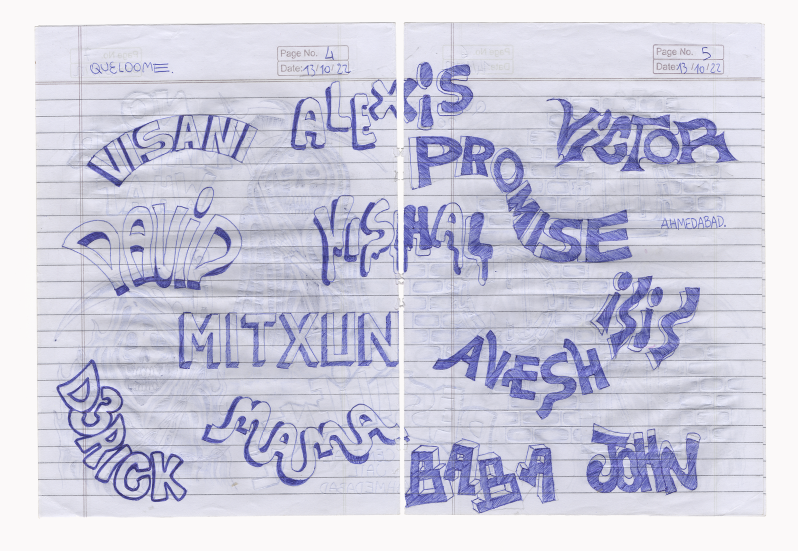 Page No. 4
Date: 13/10/22
QUELOOME.
Page No. 5
Date: 13/10/22
ALEXIS
VISANI
VICTOR
PROMISE
DAVID
VISHAL
AHMEDABAD.
MITXUN
ISIS
AVESH
D3RICK
MAMA
BABA
JOHN